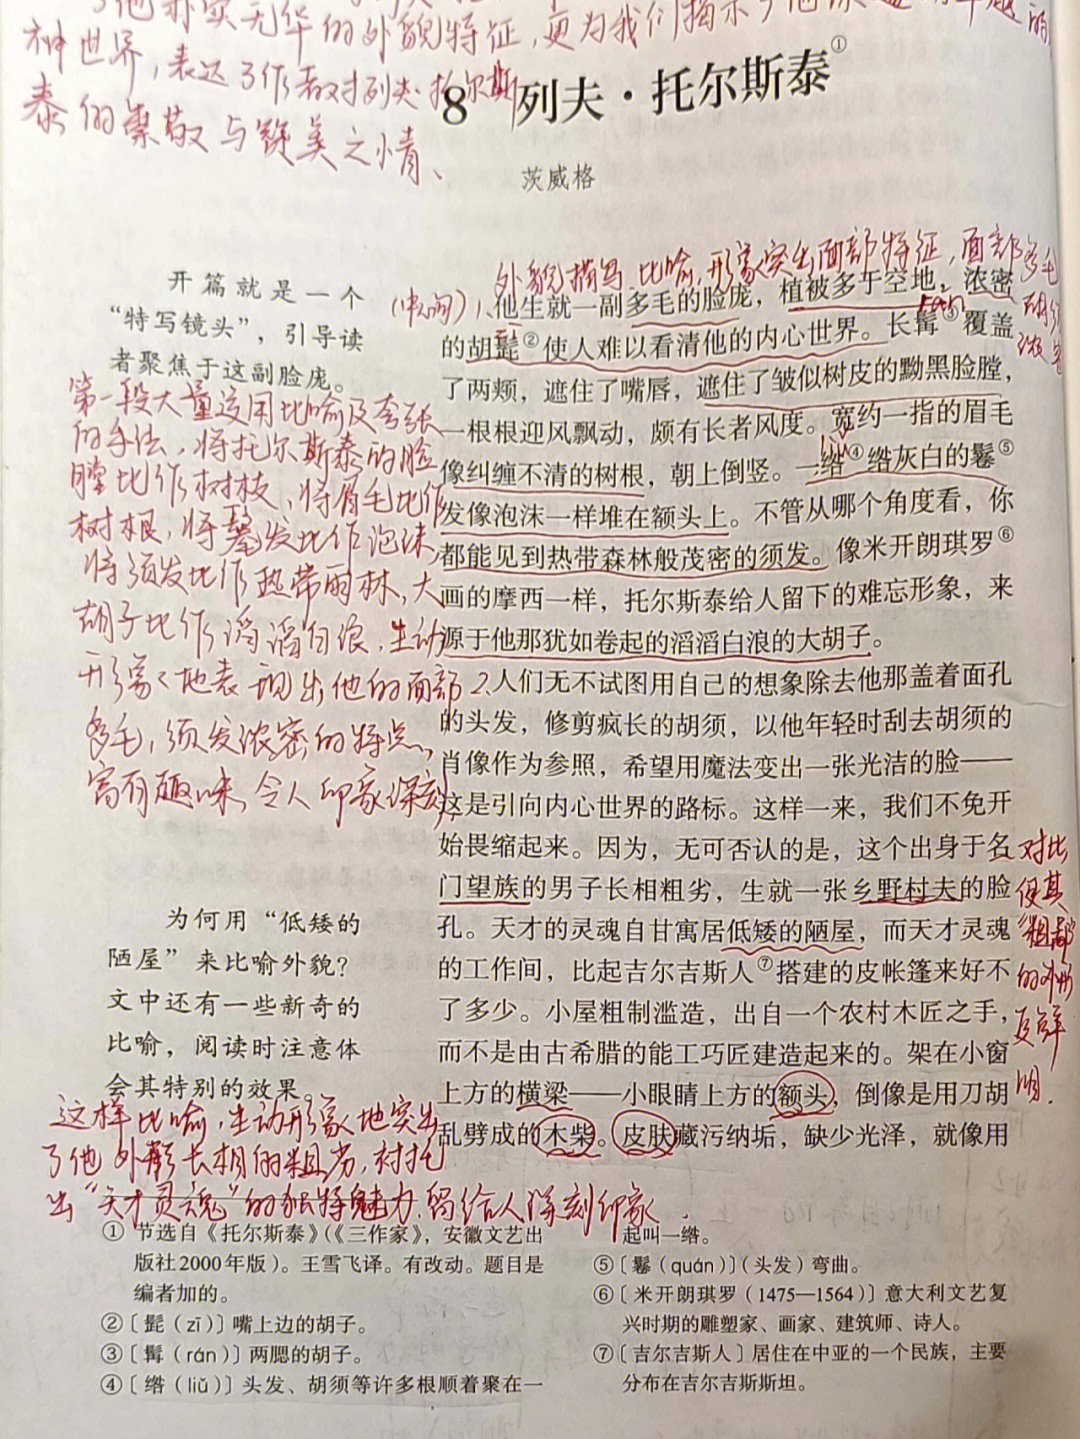 神世界，表达了作者对列夫·托尔斯
泰的崇敬与赞美之情、
8 列夫·托尔斯泰①
茨威格
外貌描写 比喻，形象突出面部特征，面部多毛
开篇就是一个
“特写镜头”，引导读
者聚焦于这副脸庞。
第一段大量运用比喻及夸张
的手法，将托尔斯泰的脸
膛比作树枝、将眉毛比作
树根，将鬈发比作泡沫，
将须发比作热带雨林，大
胡子比作滔滔白浪，生动
形象地表现出他的面部
多毛，须发浓密的特点，
富有趣味，令人印象深刻
为何用“低矮的
陋屋”来比喻外貌？
文中还有一些新奇的
比喻，阅读时注意体
会其特别的效果。
这样比喻，生动形象地突出
了他外貌长相的粗劣，衬托
出“天才灵魂”的独特魅力，留给人深刻印象
1、他生就一副多毛的脸庞，植被多于空地，浓密
的胡髭②使人难以看清他的内心世界。长髯③覆盖
了两颊，遮住了嘴唇，遮住了皱似树皮的黝黑脸膛，
一根根迎风飘动，颇有长者风度。宽约一指的眉毛
像纠缠不清的树根，朝上倒竖。一绺④绺灰白的鬈⑤
发像泡沫一样堆在额头上。不管从哪个角度看，你
都能见到热带森林般茂密的须发。像米开朗琪罗⑥
画的摩西一样，托尔斯泰给人留下的难忘形象，来
源于他那犹如卷起的滔滔白浪的大胡子。
2、人们无不试图用自己的想象除去他那盖着面孔
的头发，修剪疯长的胡须，以他年轻时刮去胡须的
肖像作为参照，希望用魔法变出一张光洁的脸——
这是引向内心世界的路标。这样一来，我们不免开
始畏缩起来。因为，无可否认的是，这个出身于名
门望族的男子长相粗劣，生就一张乡野村夫的脸
孔。天才的灵魂自甘寓居低矮的陋屋，而天才灵魂
的工作间，比起吉尔吉斯人⑦搭建的皮帐篷来好不
了多少。小屋粗制滥造，出自一个农村木匠之手，
而不是由古希腊的能工巧匠建造起来的。架在小窗
上方的横梁——小眼睛上方的额头，倒像是用刀胡
乱劈成的木柴。皮肤藏污纳垢，缺少光泽，就像用
对比
使其
的外形
鲜
明.
① 节选自《托尔斯泰》（《三作家》，安徽文艺出
版社2000年版）。王雪飞译。有改动。题目是
编者加的。
②〔髭（zī）〕嘴上边的胡子。
③〔髯（rán）〕两腮的胡子。
④〔绺（liǔ）〕头发、胡须等许多根顺着聚在一
起叫一绺。
⑤〔鬈（quán）〕（头发）弯曲。
⑥〔米开朗琪罗（1475—1564）〕意大利文艺复
兴时期的雕塑家、画家、建筑师、诗人。
⑦〔吉尔吉斯人〕居住在中亚的一个民族，主要
分布在吉尔吉斯斯坦。